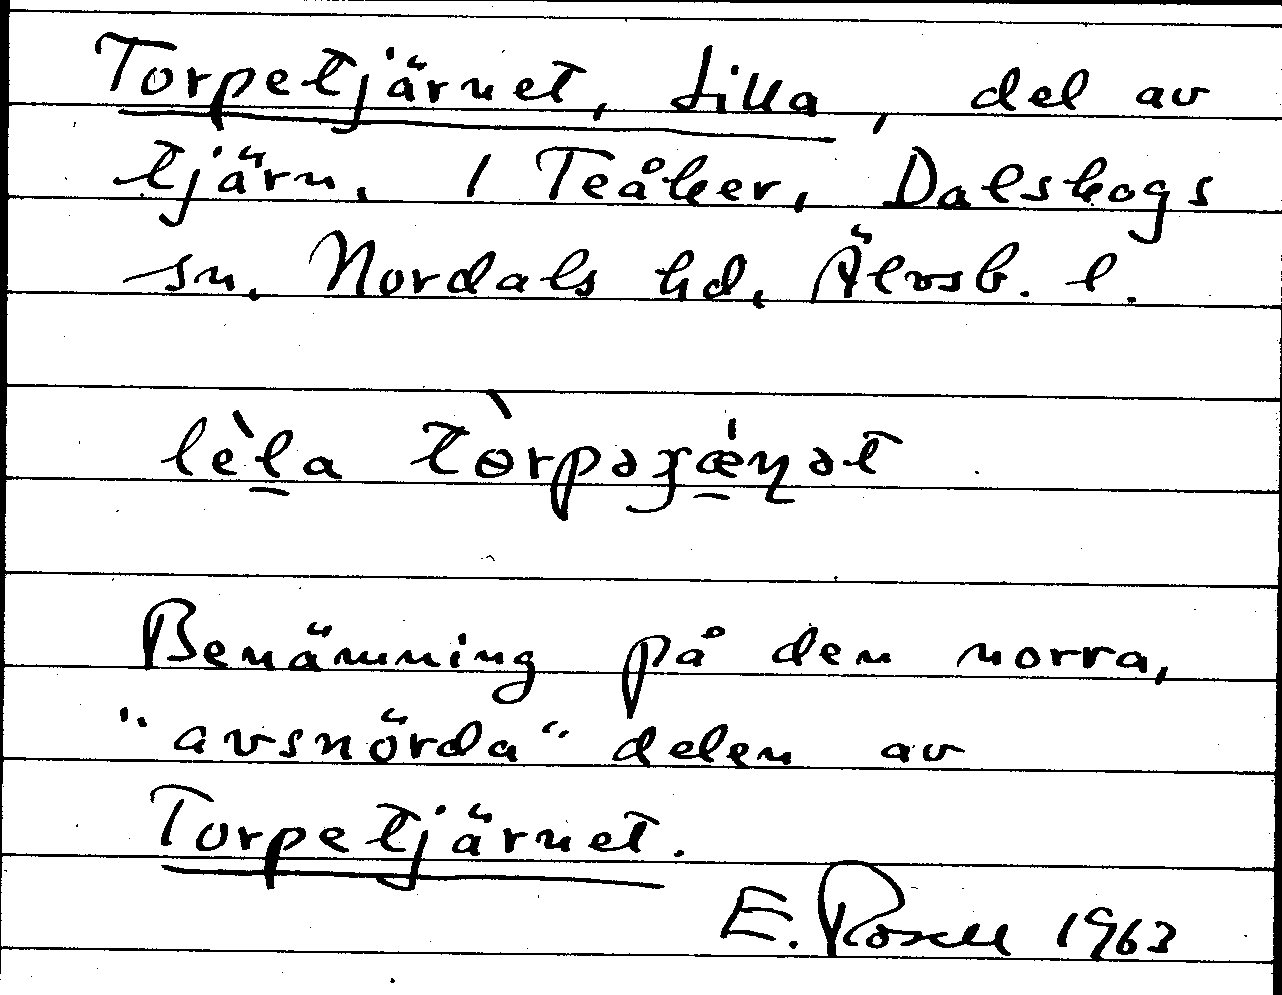 Torpetjärnet, Lilla, del av
tjärn. 1 Teåker, Dalskogs
sn. Nordals hd, Älvsb. l.
lèla tòrpəʃǽɳət
Benämning på den norra,
"avsnörda" delen av
Torpetjärnet.
E. Rosell 1963